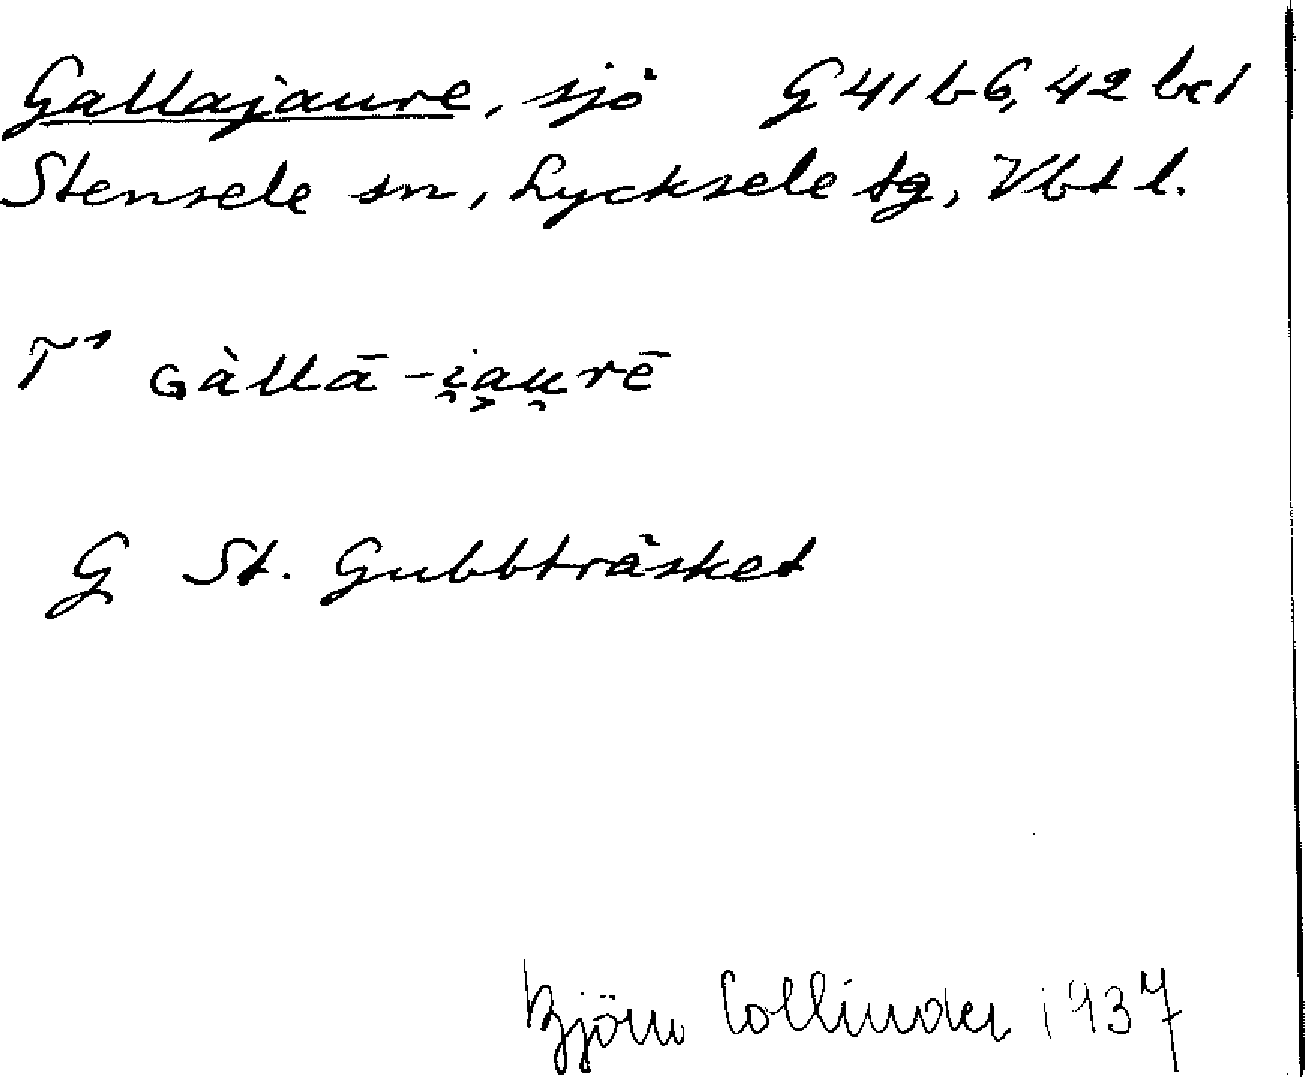 Gallajaure, sjö G 41 b-G, 42 bcd
Stensele sn, Lycksele tg, Vbtl.
T¹ ɢàllā-i̯au̯rē
G St. Gubbträsket
Björn Collinder 1937